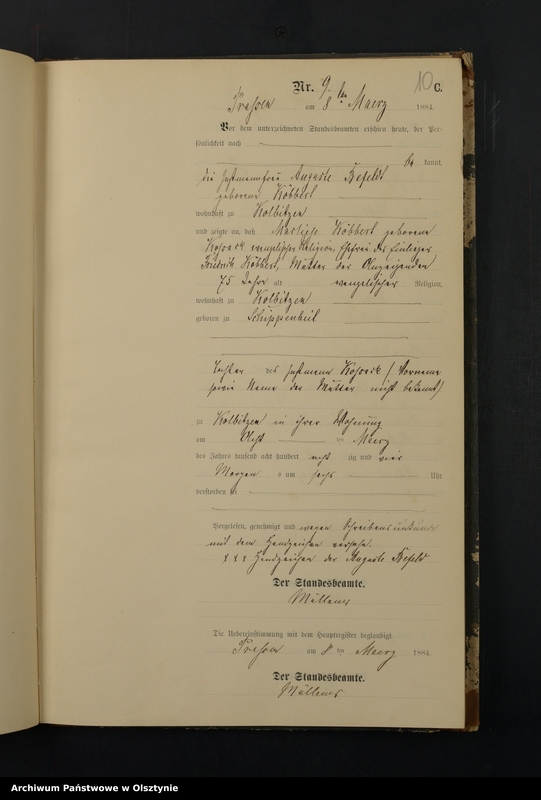 Nr. 9. 10 C.
am 8ten Maerz 1884.
Vor dem unterzeichneten Standesbeamten erschien heute, der Per-
sönlichkeit nach
be kannt,
die Instmannfrau Auguste Befeldt
geborene Köbbert
wohnhaft zu Kolbitzen
und zeigte an, daß Köbbert geborene
Kossack evangelischer Religion, Ehefrau des Einlieger
Friedrich Köbbert, Mutter der Anzeigenden
75 Jahr alt evangelischer Religion,
wohnhaft zu Kolbitzen
geboren zu Schippenbeil
Tochter des Instmann Kossack (Vorname
sowie Name der Mutter nicht bekannt)
zu Kolbitzen in ihrer Wohnung
am Acht ten Maerz
des Jahres tausend acht hundert acht zig und vier
Morgen s um sechs Uhr
verstorben sei
Vorgelesen, genehmigt und wegen Schreibensunkunde
mit dem Handzeichen versehn.
x x x Handzeichen der Auguste Befeld
Der Standesbeamte.
Die Uebereinstimmung mit dem Hauptregister beglaubigt
am 8 ten Maerz 1884.
Der Standesbeamte.
Archiwum Państwowe w Olsztynie